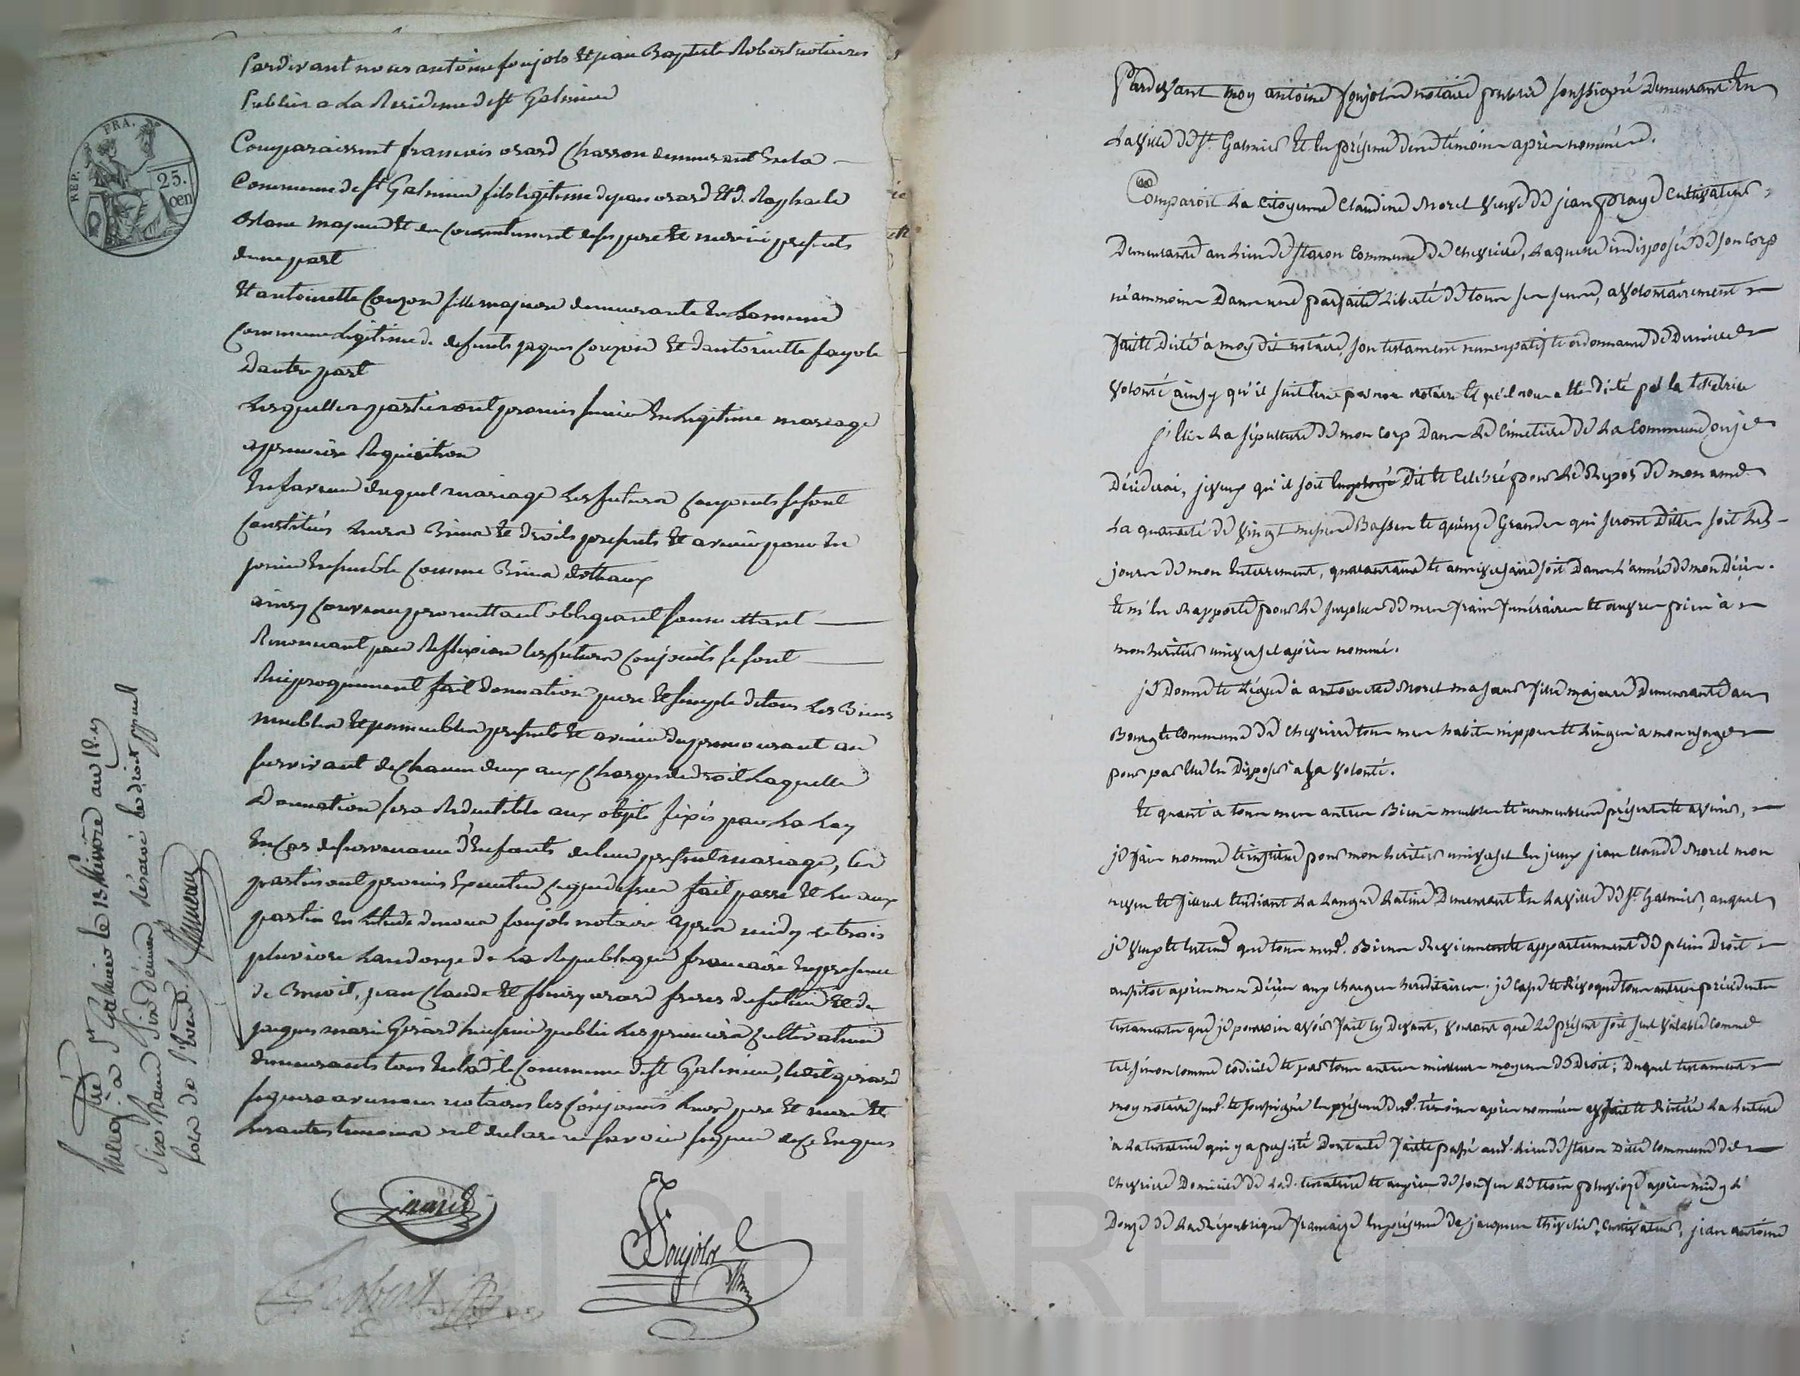 Pardevant nous antoine foujols et jean Baptiste Robert notaires
Publics a La Residence de st Galmier
REP. FRA.
25.
cen
Comparaissent francois orard Chasson demeurant en la
Commune de st Galmier fils legitime de jean orard et d.
majeur et du consentement de ses pere et mere ici presents
dune part
Et antoinette Couzon fille majeure demeurante en La meme
Commune legitime de defunts jaques Couzon et dantoinette fayole
Dautre part
Lesquelles parties ont promis sunir en Legitime mariage
a premiere Requisition
En faveur duquel mariage Les futurs Conjoints se sont
Constitués Leurs Biens et droits presents et avenir pour en
jouir ensemble Comme Biens dotaux
ainsy Convenu promettant obligeant soumettant
Renonçant par Reflexion les futurs Conjoints se sont
Reciproquement fait donnation pure et simple de tous Les Biens
meubles et jmmeubles presents et avenir du premourant au
survivant de chacun deux aux Charges de droit Laquelle
Donnation sera Reductible aux objets fixés par La Loy
En Cas de survenance d'Enfants de leur present mariage, les
parties ont promis Executer ce que dessus fait passé et Lu aux
parties en Letude de nous foujols notaire apres midy le trois
pluviose Lan donze de La Republique francaise En presence
de Benoit, jean Claude et orard freres du futur et de
jaques marie Gerard huissier public Les premiers Cultivateurs
demeurants tous en lad.te Commune de st Galmier, ledit gerard
signera avec nous notaires les Conjoints Leurs pere et mere et
Les autres temoins ont declare ne savoir signer de ce Enquis
Girard
Foujols
Robert
Enregistré à St Galmier le 15 pluviose an 12
Six francs réservé les droits
lors de l'Event.
Pardevant moy antoine foujols notaire public soussigné Demeurant En
La ville de St. Galmier et En présence des témoins après nommés.
Comparoit La Citoyenne Claudine Morel veuve de jean Cultivateur
Demeurante au Lieu de Commune de Chevrieres, Laquelle indisposée de son Corp
néammoins Dans une parfaite Liberté de tous ses sens, a volontairement
fait et Dicté à moy dit notaire son testament nuncupatif et ordonnance de Derniere
volonté ainsy qu'il suit écrit par nous notaire tel qu'il nous a été Dicté par la testatrice
j'Elis La sépulture de mon Corp Dans Le Cimetiere de La Commune ou je
Décéderai, je veux qu'il soit Dit et Célébré pour Le Répos de mon ame
La quantité de vingt messes Basses et quinze Grandes qui seront Dittes soit Les
jours de mon Enterrement, quarantaine et anniversaire soit Dans L'année de mon Décès.
et m'En Rapporte pour Le surplus de mes frais funéraires et œuvres pies à
mon héritier universel après nommé.
je Donne et Légue à antoinette Morel ma sœur fille majeure Demeurante au
Bourg et Commune de Chevrieres tous mes habits nippes et Linges à mon usage
pour par Elle En Disposer à sa volonté.
Et quant à tous mes autres Biens meubles et immeubles présents et avenir,
je fais nomme et institue pour mon héritier universel En jceux jean Claude Morel mon
neveu et filleul Etudiant La Langue Latine Demeurant En La ville de St. Galmier, auquel
je veux et Entend que tous mesd. Biens Reviennent et appartiennent de plein Droit
aussitot après mon Décès aux charges héréditaires; je Casse et Révoque tous autres précédents
testaments que je pourrois avoir fait cy Devant, voulant que Le présent soit seul valable Comme
tel, sinon comme codicile et par tous autres meilleurs moyens de Droit; Duquel testament
moy notaire susd. et soussigné En présence desd. témoins après nommés ay fait et réitéré La Lecture
à La testatrice qui y a persisté Dont acte fait et passé aud. Lieu de Ditte Commune de
Chevrieres Domicile de Lad. testatrice et auprès de son feu Le trois pluviose après midy L'
Donze de La République française En présence de jacques Cultivateur, jean antoine